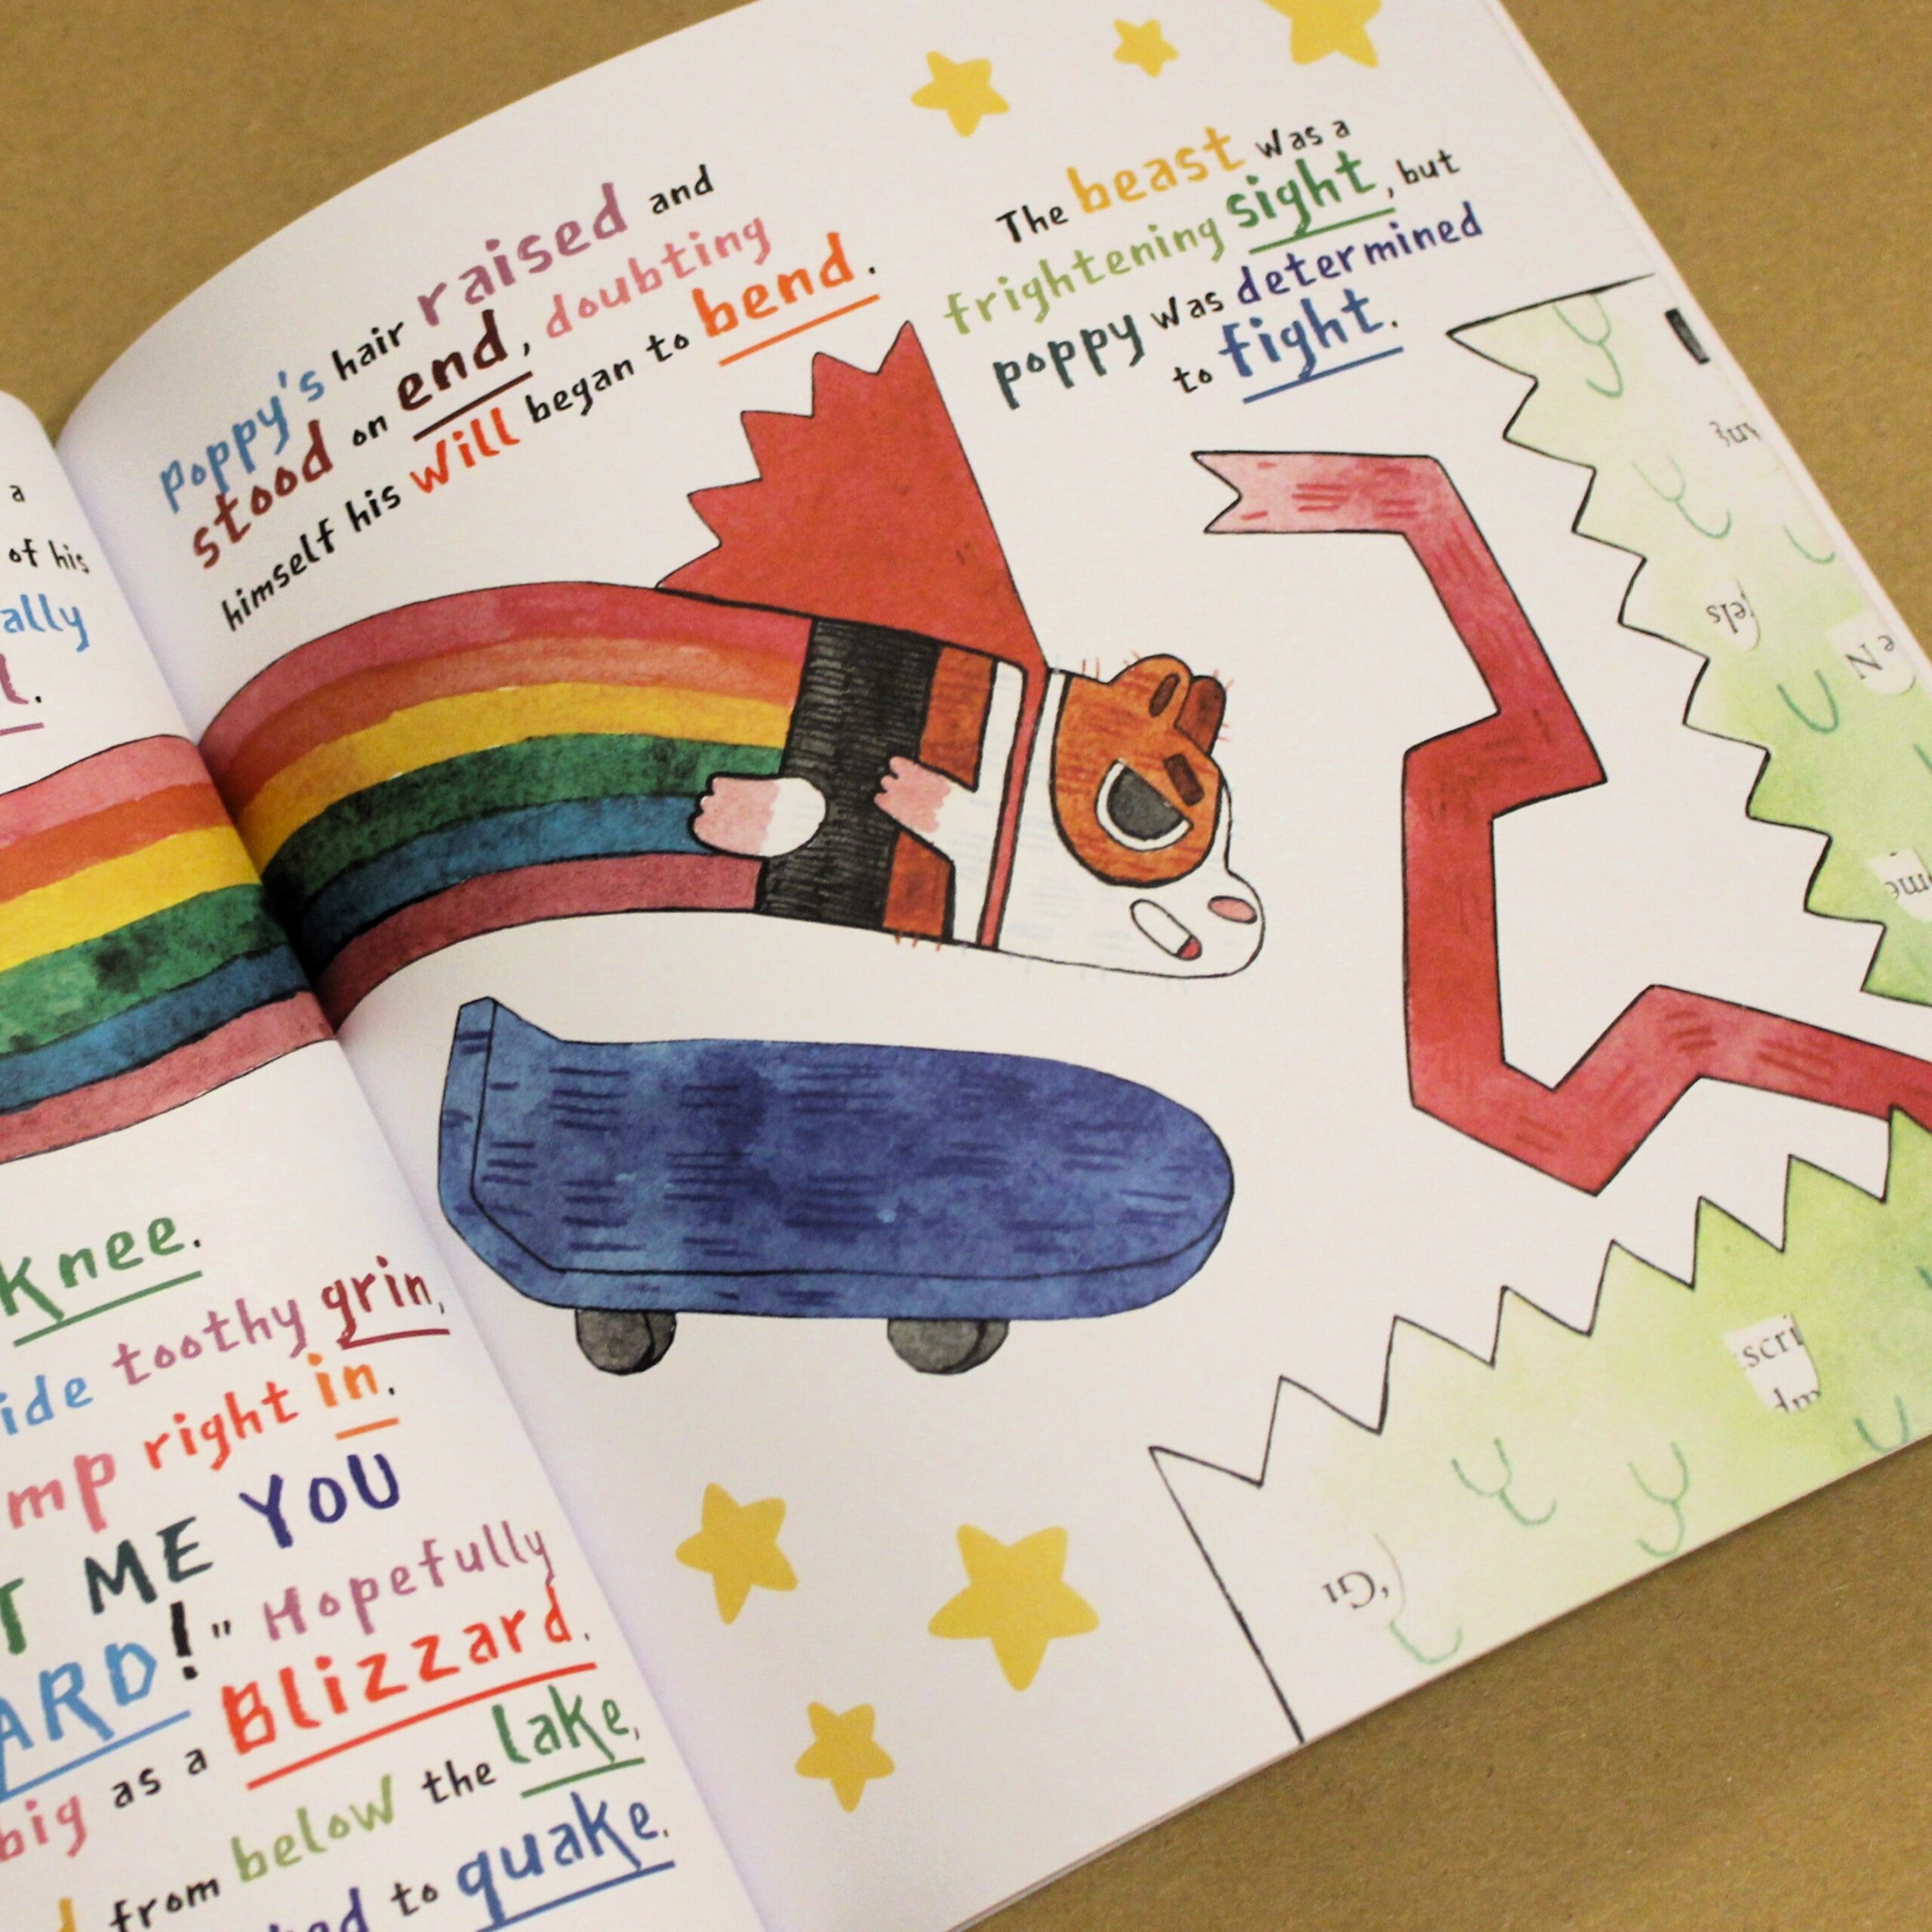 a
of his
ally
knee.
ide toothy grin,
mp right in.
T ME YOU
ARD!" Hopefully
big as a Blizzard.
from below the lake,
to quake.
poppy's hair raised and
stood on end, doubting
himself his will began to bend.
The beast was a
frightening sight, but
poppy was determined
to fight.
eN
scri